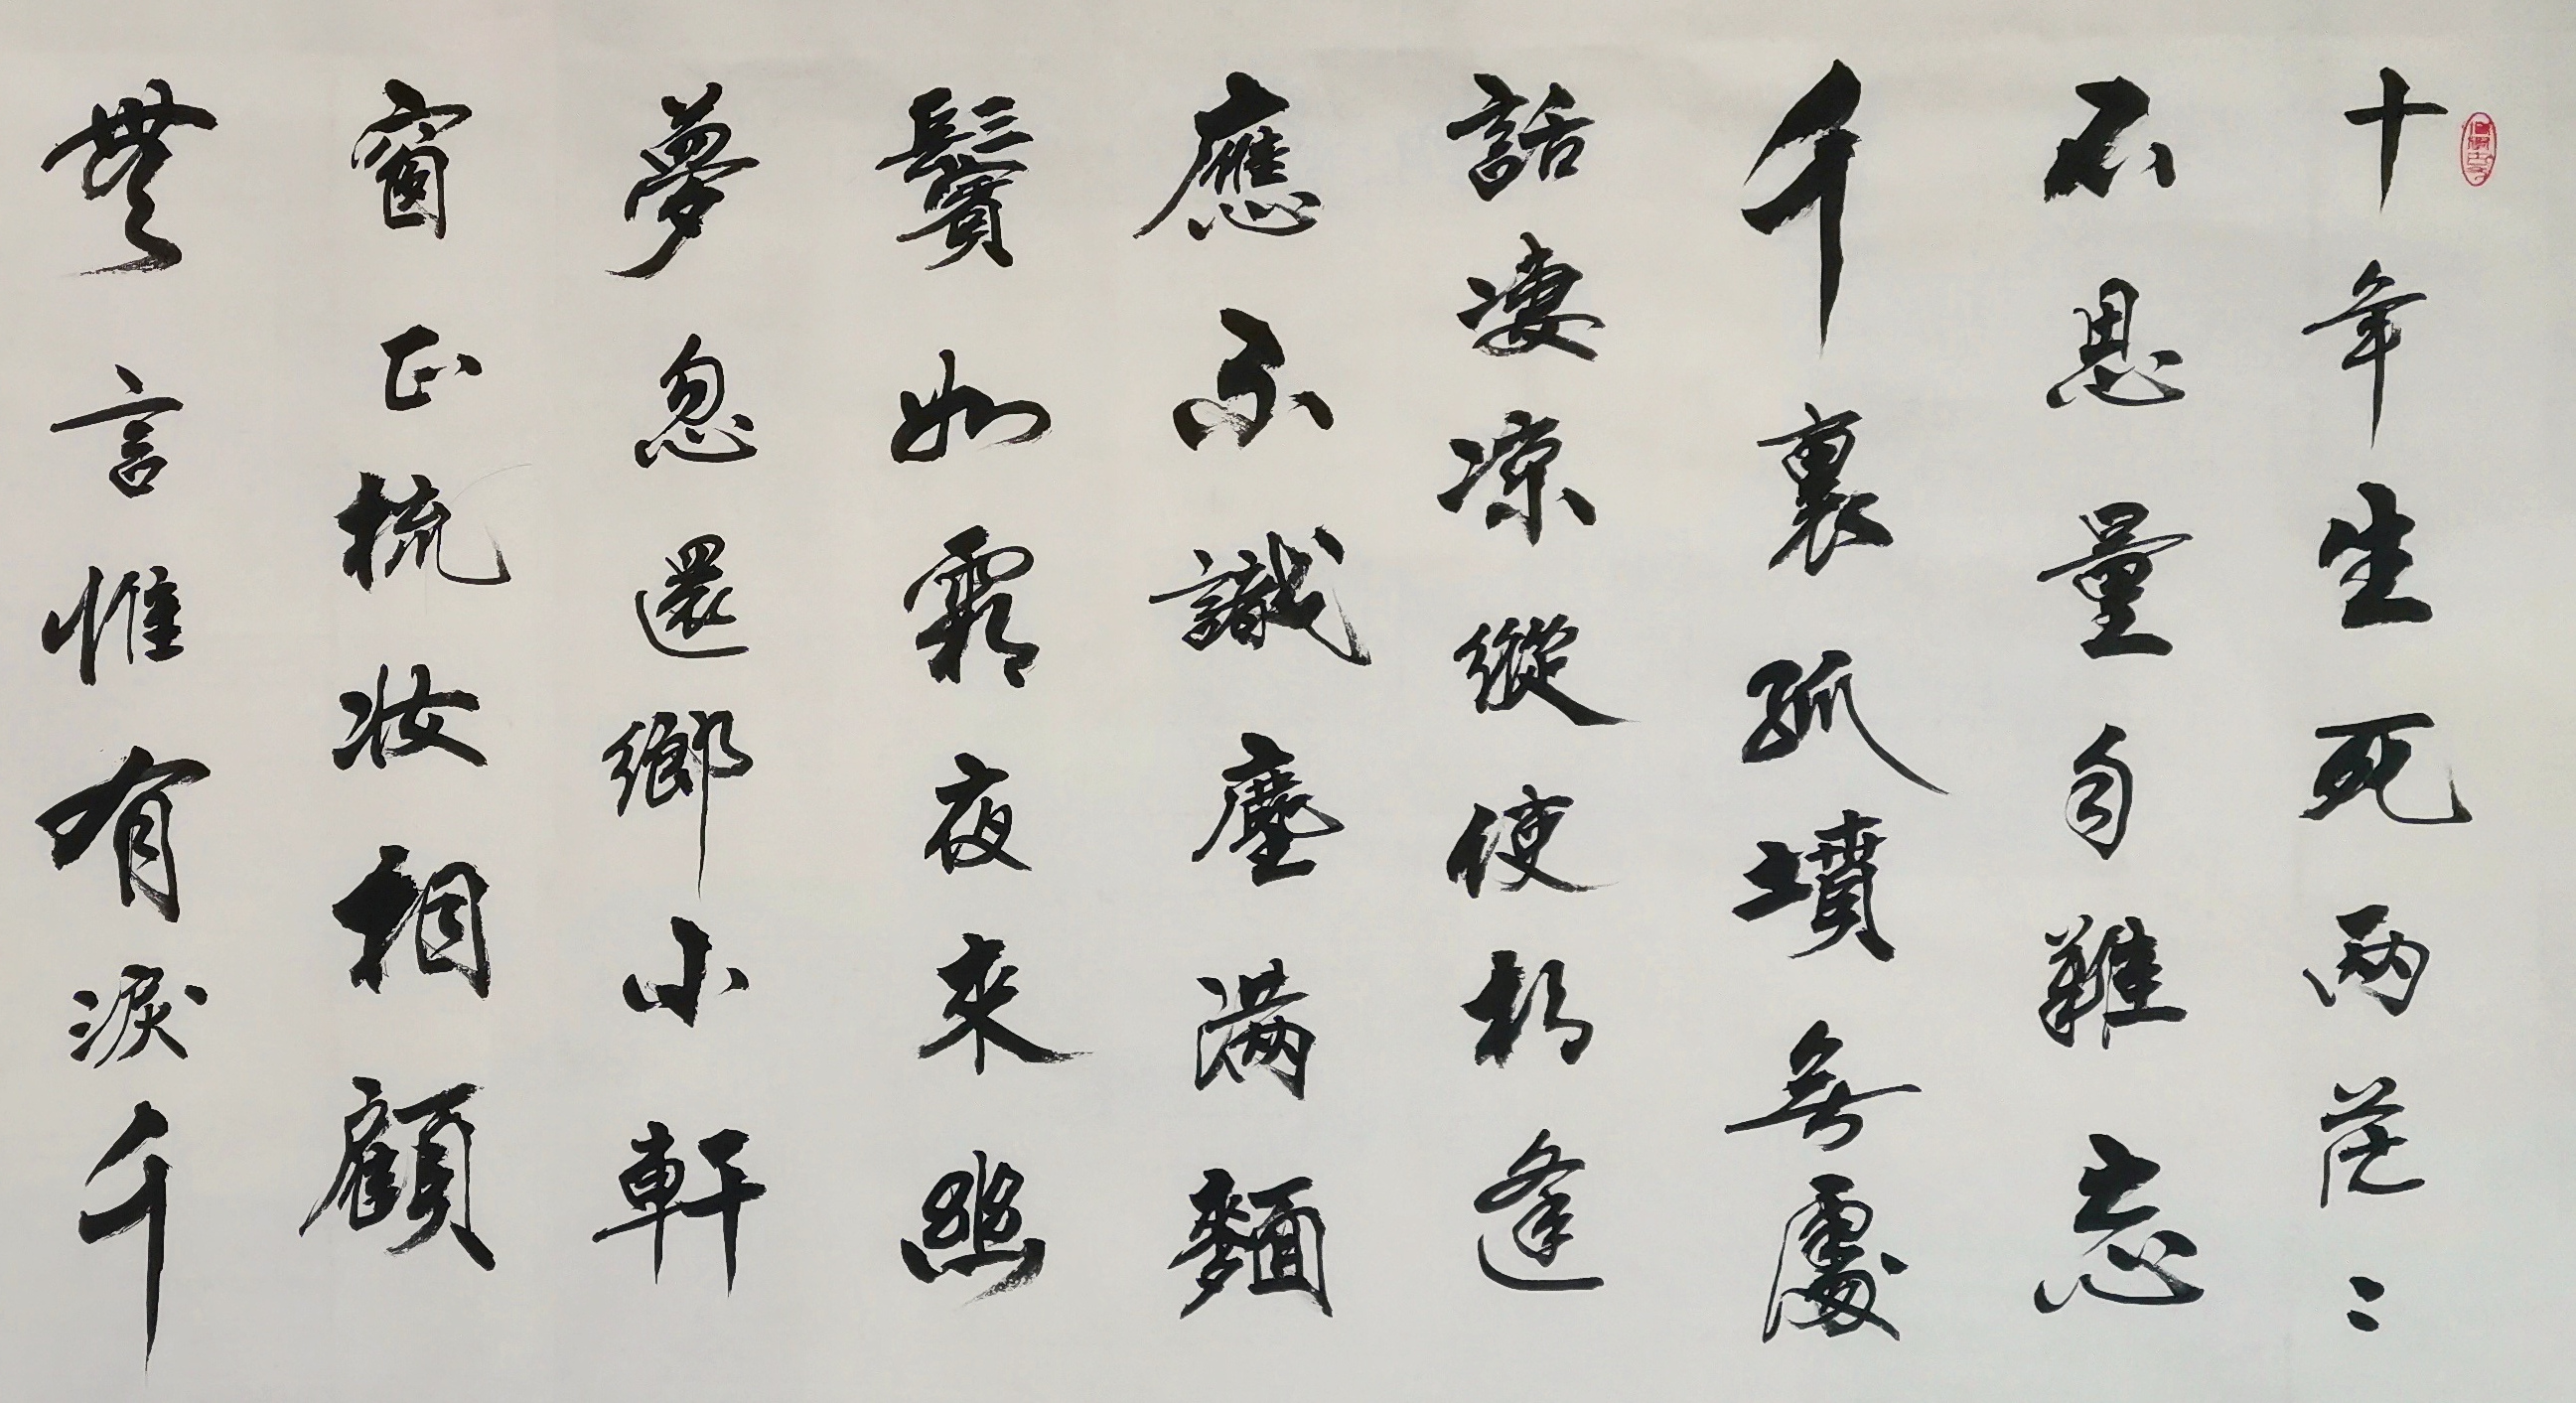 十年生死兩茫〻
不思量自難忘
千裏孤墳無處
話淒涼縱使相逢
應不識塵滿麵
鬢如霜夜來幽
夢忽還鄉小軒
窗正梳妝相顧
無言惟有淚千